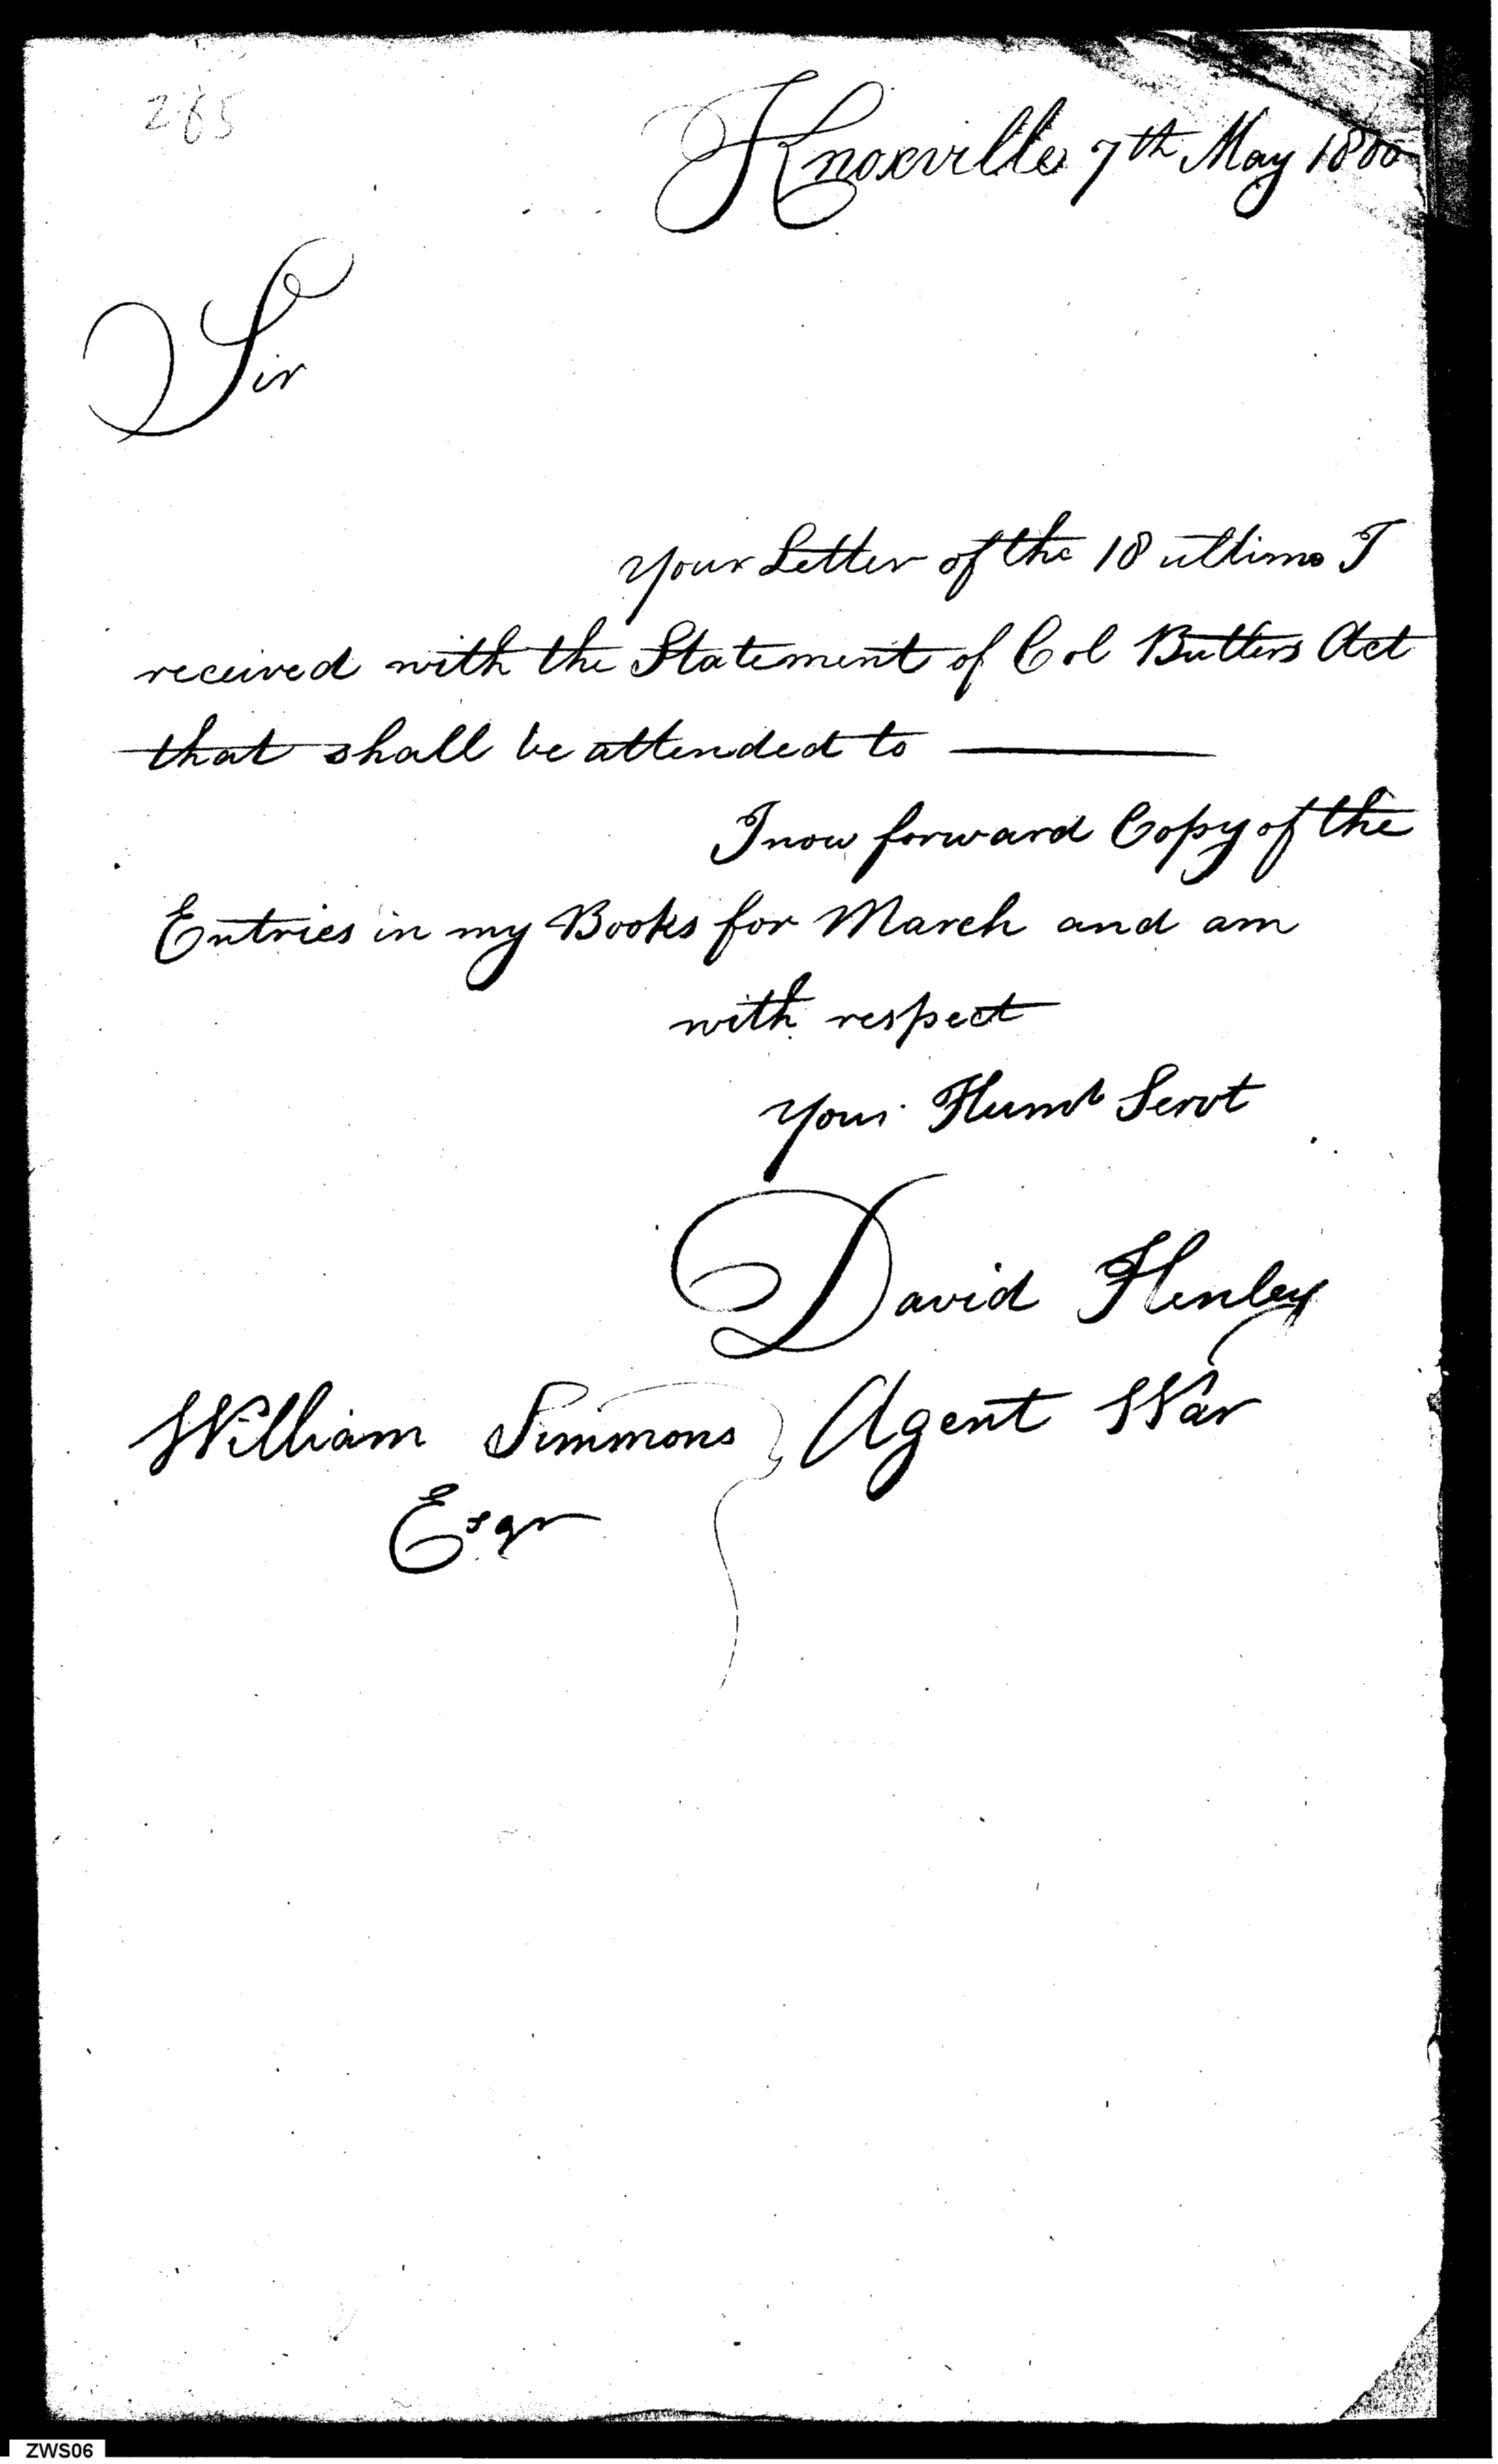 265
Knoxville 7th May 1800
Sir
your Letter of the 18 ultimo I
received with the Statement of Col Butlers Act
that shall be attended to ———
I now forward Copy of the
Entries in my Books for March and am
with respect
your Huml Servt
David Henley
William Simmons } Agent War
Esqr
ZWS06